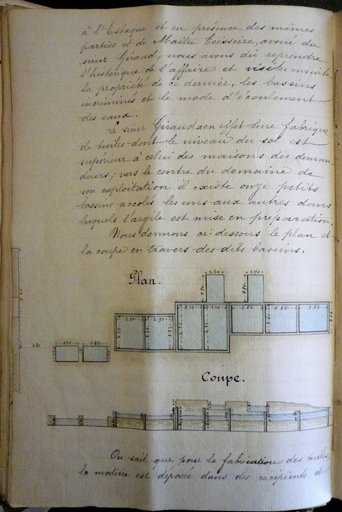 à l'Estaque et en présence des mêmes
parties et de Maître Teissère, avoué du
sieur Giraud, nous avons dû reprendre
l'historique de l'affaire et visiter
la propriété de ce dernier, les bassins
incriminés et le mode d'écoulement
des eaux.
Le sieur Giraud a en effet une fabrique
de tuiles dont le niveau du sol est
supérieur à celui des maisons des deman
deurs; vers le centre du domaine de
son exploitation il existe onze petits
bassins accolés les uns aux autres dans
lesquels l'argile est mise en préparation.
Nous donnons ci-dessous le plan et
la coupe en travers des dits bassins.
Plan.
Coupe.
On sait que pour la fabrication des
la matière est déposée dans des récipients